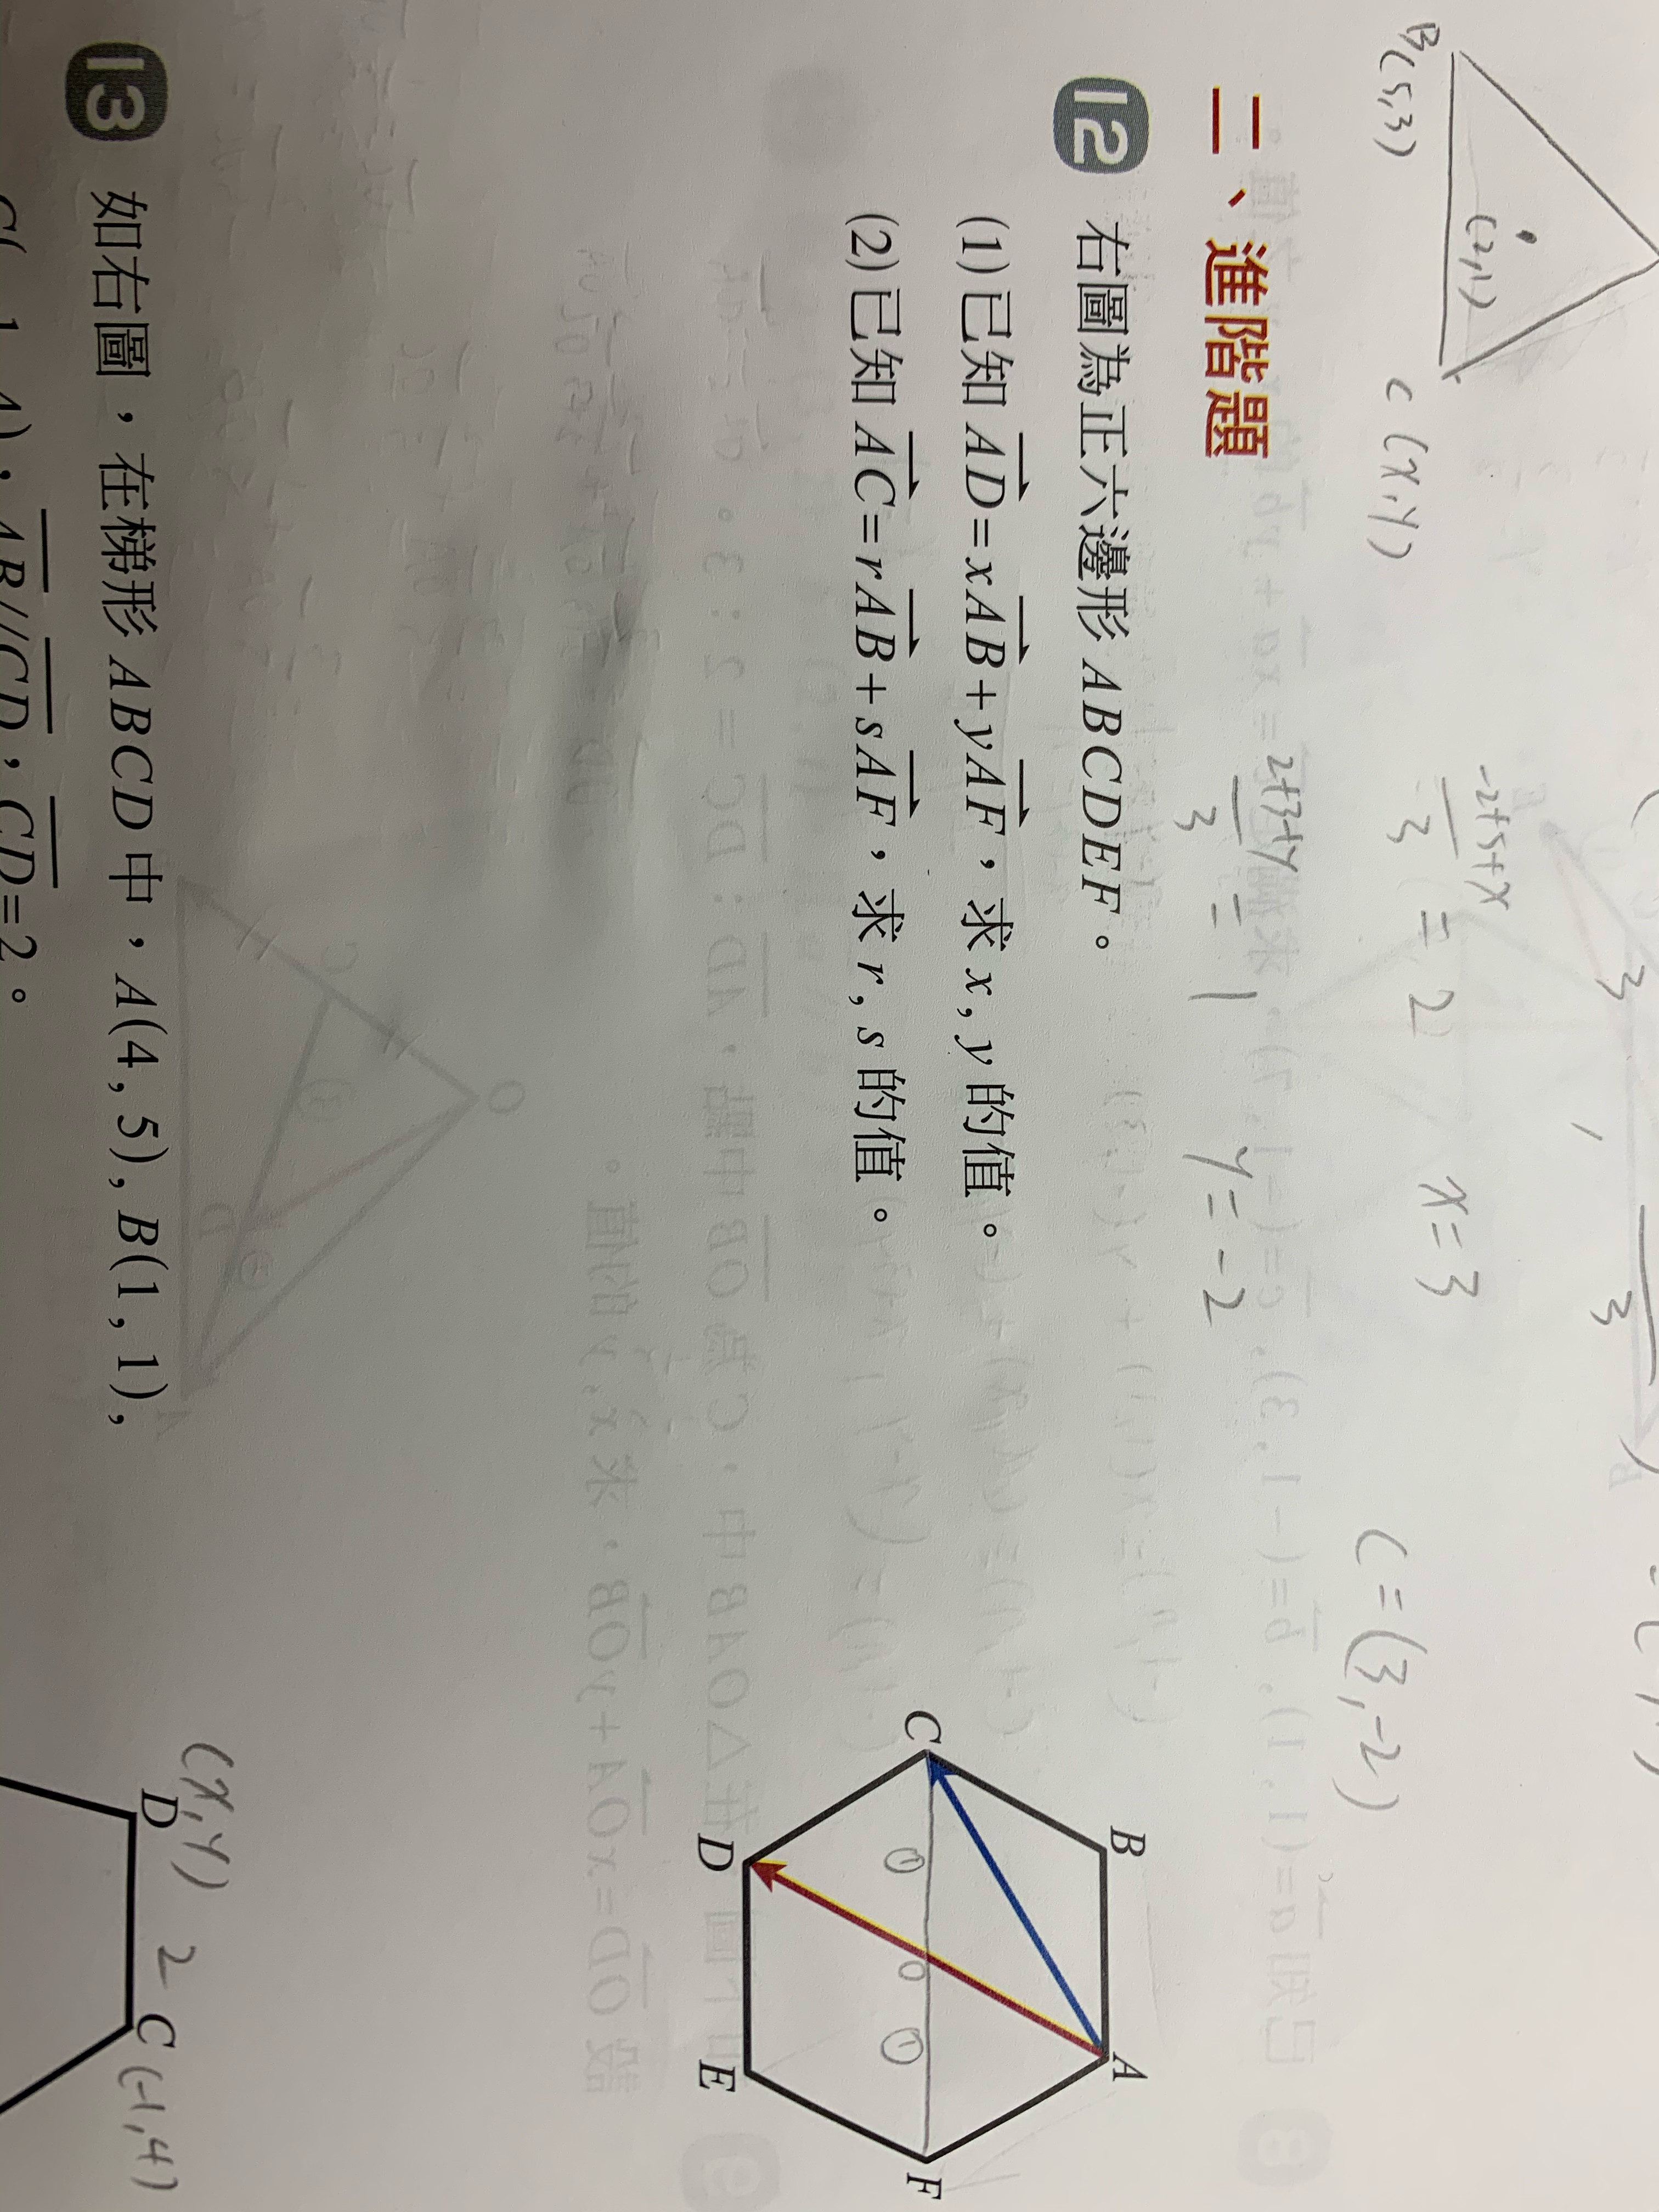 B(5,3)
(2,1)
C(x,y)
-2+5+x
3
= 2
x=3
C=(3,-2)
2+3+y
3
= 1
y=-2
二、進階題
12 右圖為正六邊形 ABCDEF。
(1)已知 AD=xAB+yAF,求 x, y 的值。
(2)已知 AC=rAB+sAF,求 r, s 的值。
B
A
C
①
O
①
F
D
E
13 如右圖,在梯形 ABCD 中,A(4, 5), B(1, 1),
C(-1, 4);AB//CD,CD=2。
(x,y)
D
2
C(-1,4)